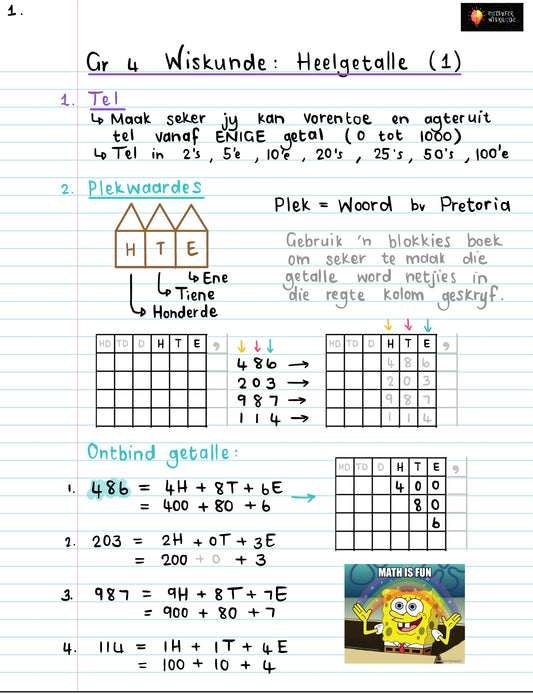 1.
CHEDDYFER
WISKUNDE
Gr 4 Wiskunde: Heelgetalle (1)
1. Tel
↳ Maak seker jy kan vorentoe en agteruit
tel vanaf ENIGE getal (0 tot 1000)
↳ Tel in 2's, 5'e, 10'e, 20's, 25's, 50's, 100'e
2. Plekwaardes
Plek = Woord bv Pretoria
H T E
↳ Ene
↳ Tiene
↳ Honderde
Gebruik 'n blokkies boek
om seker te maak die
getalle word netjies in
die regte kolom geskryf.
HD TD D H T E ,
486 →
203 →
987 →
114 →
HD TD D H T E ,
4 8 6
2 0 3
9 8 7
1 1 4
Ontbind getalle:
1. 486 = 4H + 8T + 6E →
= 400 + 80 + 6
HD TD D H T E ,
4 0 0
8 0
6
2. 203 = 2H + 0T + 3E
= 200 + 0 + 3
3. 987 = 9H + 8T + 7E
= 900 + 80 + 7
4. 114 = 1H + 1T + 4E
= 100 + 10 + 4
MATH IS FUN